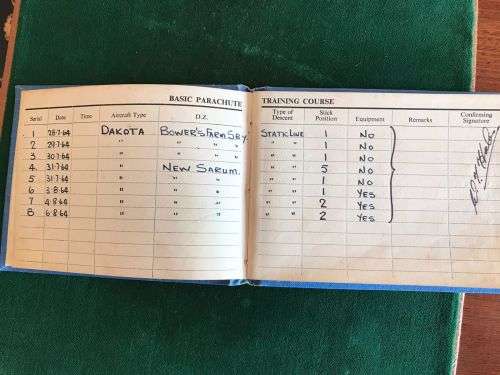 BASIC PARACHUTE TRAINING COURSE
Serial Date Time Aircraft Type D.Z. Type of Descent Stick Position Equipment Remarks Confirming Signature
1 28.7.64 DAKOTA BOWER'S FARM SBY. STATIC LINE 1 NO
2 29.7.64 " " " " " " 1 NO
3 30.7.64 " " " " " " 1 NO
4. 31.7.64 " NEW SARUM. " " 5 NO
5 31.7.64 " " " " " 1 NO
6 3.8.64 " " " " " 1 YES
7 4.8.64 " " " " " 2 YES
8 6.8.64 " " " " " 2 YES